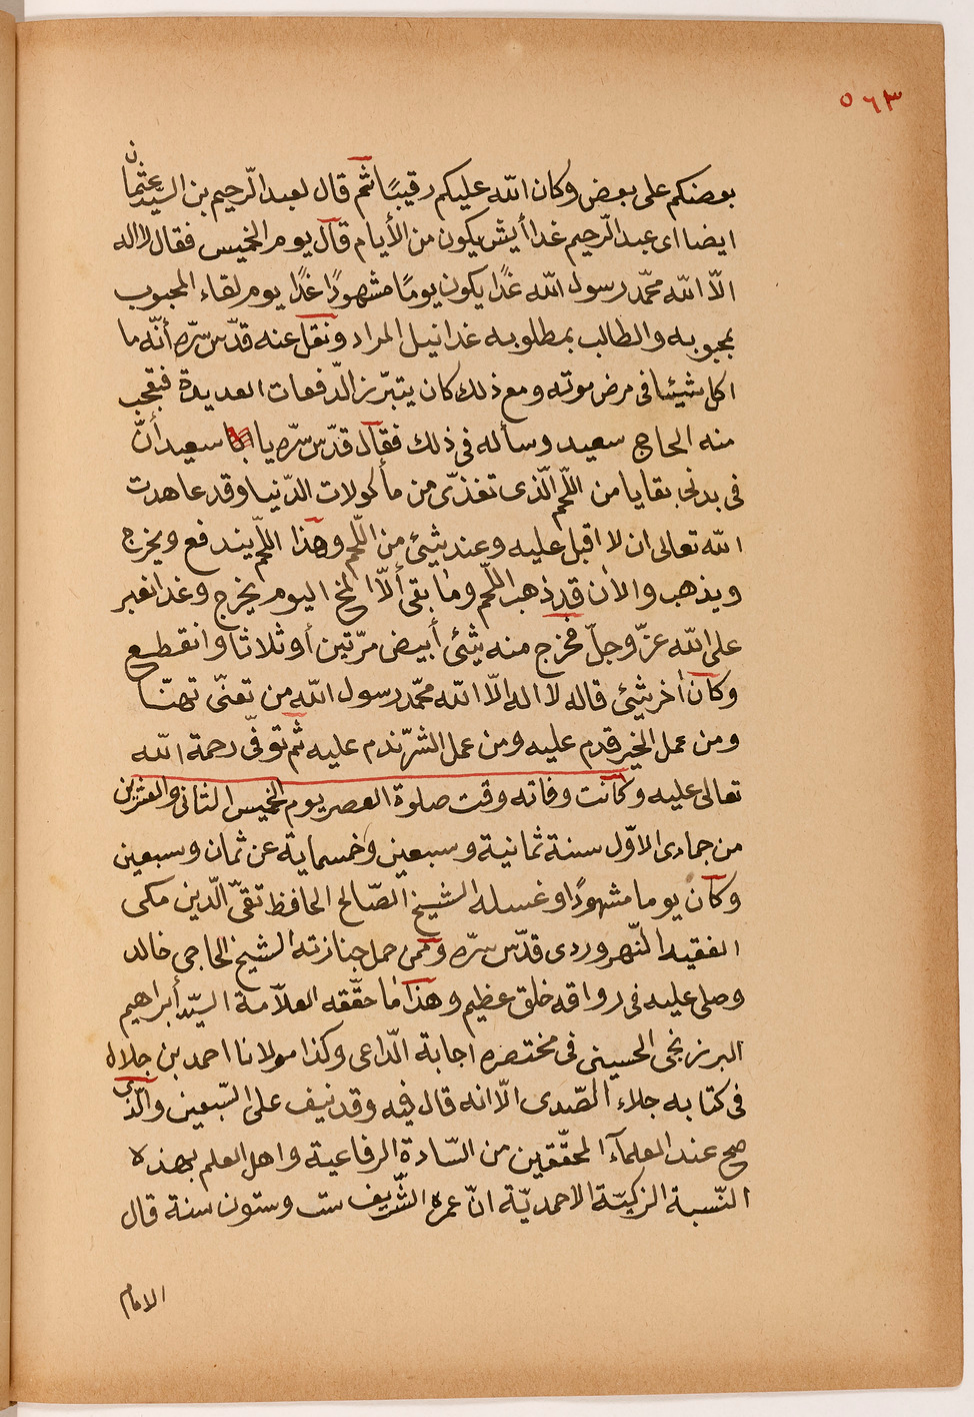 ٥٦٣
بعضكم على بعض وكان الله عليكم رقيبًا ثم قال لعبد الرّحيم بن السيّد عثمان
ايضا اى عبد الرّحيم غدا أيش يكون من الأيام قال يوم الخميس فقال لا اله
الّا الله محمّد رسول الله غدًا يكون يومًا مشهودًا غدًا يوم لقاء المحبوب
بمحبوبه والطالب بمطلوبه غدا نيل المراد ونقل عنه قدّس سرّه أنّه ما
اكل شيئا فى مرض موته ومع ذلك كان يتبرّز الدّفعات العديدة فتعجب
منه الحاج سعيد وسأله فى ذلك فقال قدّس سرّه يا سعيد أنّ
فى بدنى بقايا من اللّحم الّذى تغذّى من مأكولات الدّنيا وقد عاهدت
الله تعالى ان لا اقبل عليه وعندى شئ من اللّحم وهذا اللّحم يندفع ويخرج
ويذهب والآن قد ذهب اللّحم وما بقى ألّا المخ اليوم يخرج وغدا نعبر
على الله عزّ وجلّ فخرج منه شئ أبيض مرّتين أو ثلاثا وانقطع
وكان أخر شئ قاله لا اله الّا الله محمّد رسول الله من تعنّى تهنّا
ومن عمل الخير قدم عليه ومن عمل الشرّ ندم عليه ثم توفّى رحمة الله
تعالى عليه وكانت وفاته وقت صلوة العصر يوم الخميس الثانى والعشرين
من جمادى الاوّل سنة ثمانية وسبعين وخمسماية عن ثمان وسبعين
وكان يوما مشهودًا وغسله الشيخ الصّالح الحافظ تقىّ الدّين مكى
الفقيه النّهروردى قدّس سرّه وممّن حمل جنازته الشيخ الحاجى خالد
وصلى عليه فى رواقه خلق عظيم وهذا ما حقّقه العلّامة السيّد أبراهيم
البرزنجى الحسينى فى مختصره اجابة الدّاعى وكذا مولانا احمد بن جلال
فى كتابه جلاء الصّدى الّا انه قال فيه وقد نيف على السّبعين والّذى
صح عند العلمآء المحقّقين من السّادة الرفاعية واهل العلم بهذه
النّسبة الزكيّة الاحمديّة انّ عمره الشّريف ست وستون سنة قال
الامام